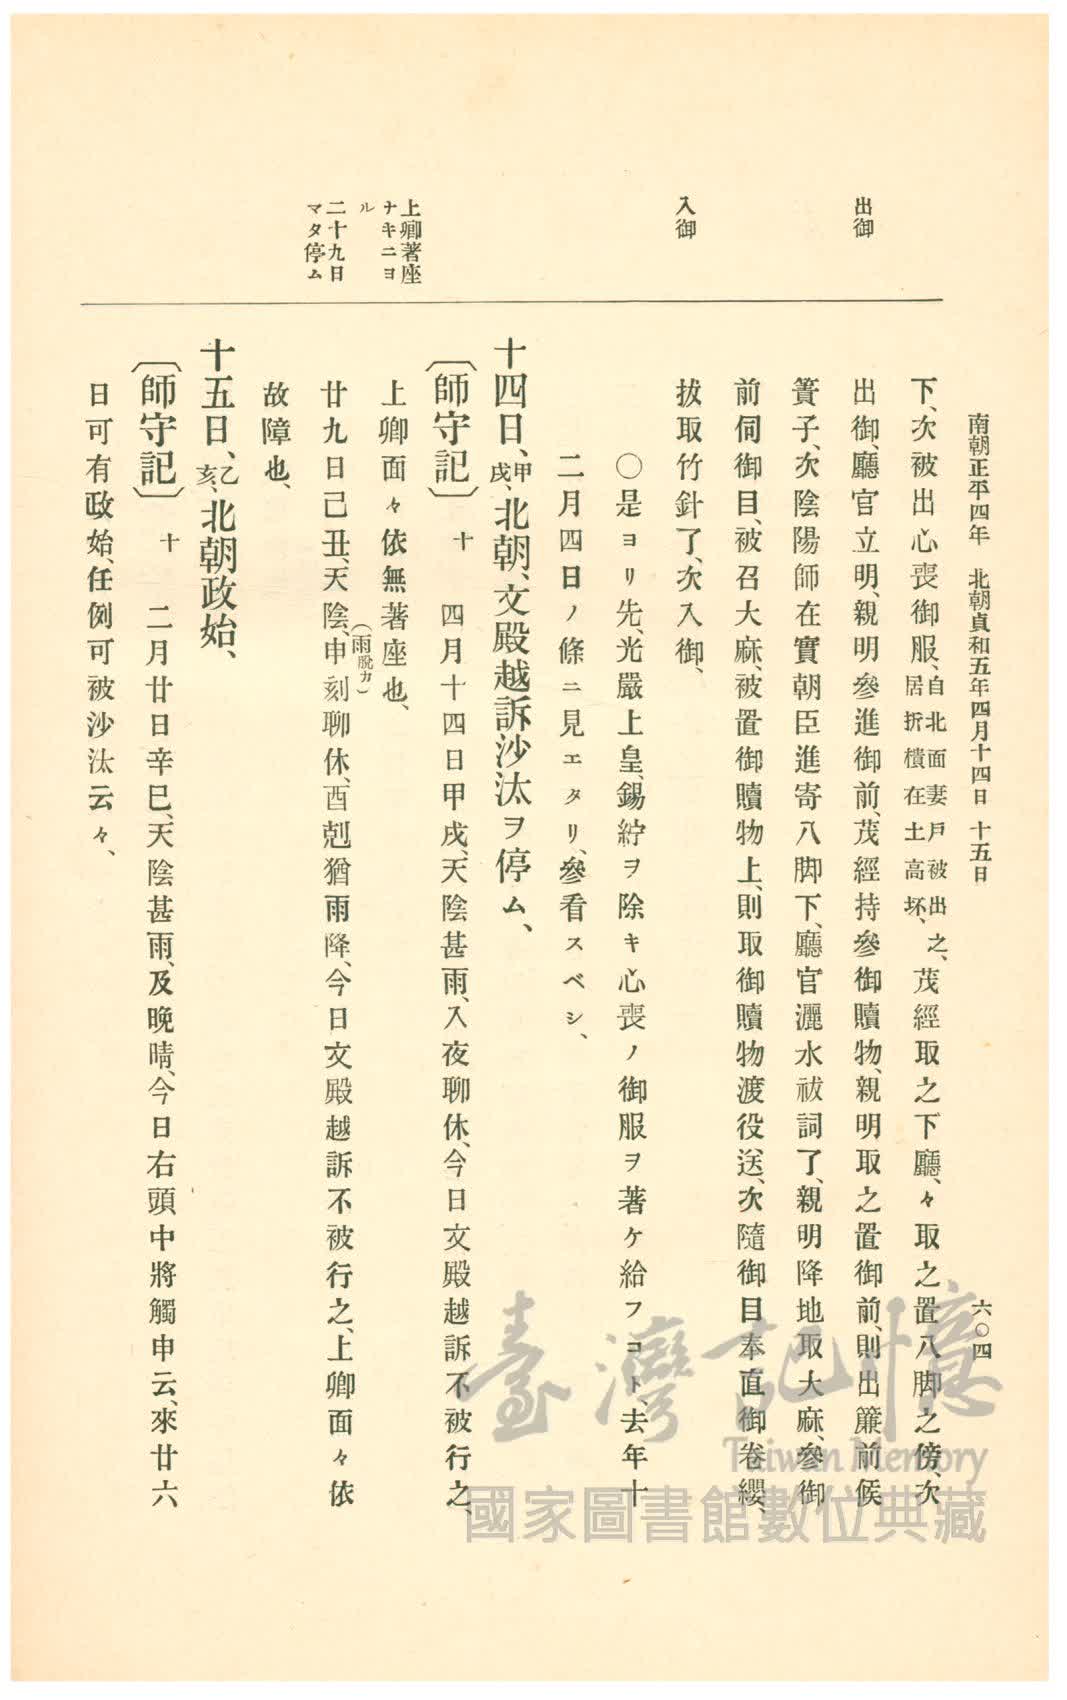 南朝正平四年 北朝貞和五年四月十四日 十五日
六〇四
出御
入御
上卿著座
ナキニヨ
ル
二十九日
マタ停ム
下、次被出心喪御服、自北面妻戸被出之、居折樻在土高坏、茂經取之下廳、々取之置八脚之傍、次
出御、廳官立明、親明參進御前、茂經持參御贖物、親明取之置御前、則出簾前候
簀子、次陰陽師在實朝臣進寄八脚下、廳官灑水祓詞了、親明降地取大麻、參御
前伺御目、被召大麻、被置御贖物上、則取御贖物渡役送、次隨御目奉直御卷纓、
拔取竹針了、次入御、
〇是ヨリ先、光嚴上皇、錫紵ヲ除キ心喪ノ御服ヲ著ケ給フコト、去年十
二月四日ノ條ニ見エタリ、參看スベシ、
十四日、甲戌、北朝、文殿越訴沙汰ヲ停ム、
〔師守記〕 十 四月十四日甲戌、天陰甚雨、入夜聊休、今日文殿越訴不被行之、
上卿面々依無著座也、
廿九日己丑、天陰、申刻聊休、(雨脫カ)酉剋猶雨降、今日文殿越訴不被行之、上卿面々依
故障也、
十五日、乙亥、北朝政始、
〔師守記〕 十 二月廿日辛巳、天陰甚雨、及晚晴、今日右頭中將觸申云、來廿六
日可有政始、任例可被沙汰云々、
臺灣記憶
Taiwan Memory
國家圖書館數位典藏